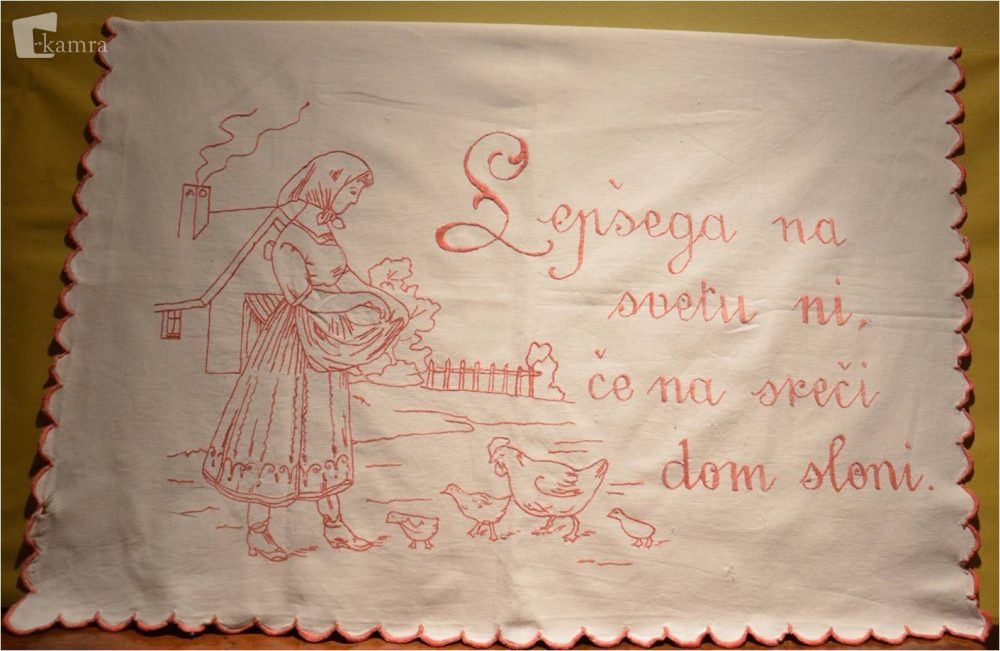 kamra
Lepšega na
svetu ni,
če na sreči
dom sloni.